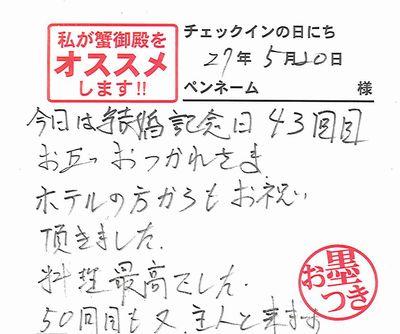 私が蟹御殿を
オススメ
します!!
チェックインの日にち
27年 5月20日
ペンネーム 様
今日は結婚記念日 43回目
お互つおつかれさま
ホテルの方からもお祝い
頂きました.
料理最高でした.
50回目も又、主人と来ます
お墨つき